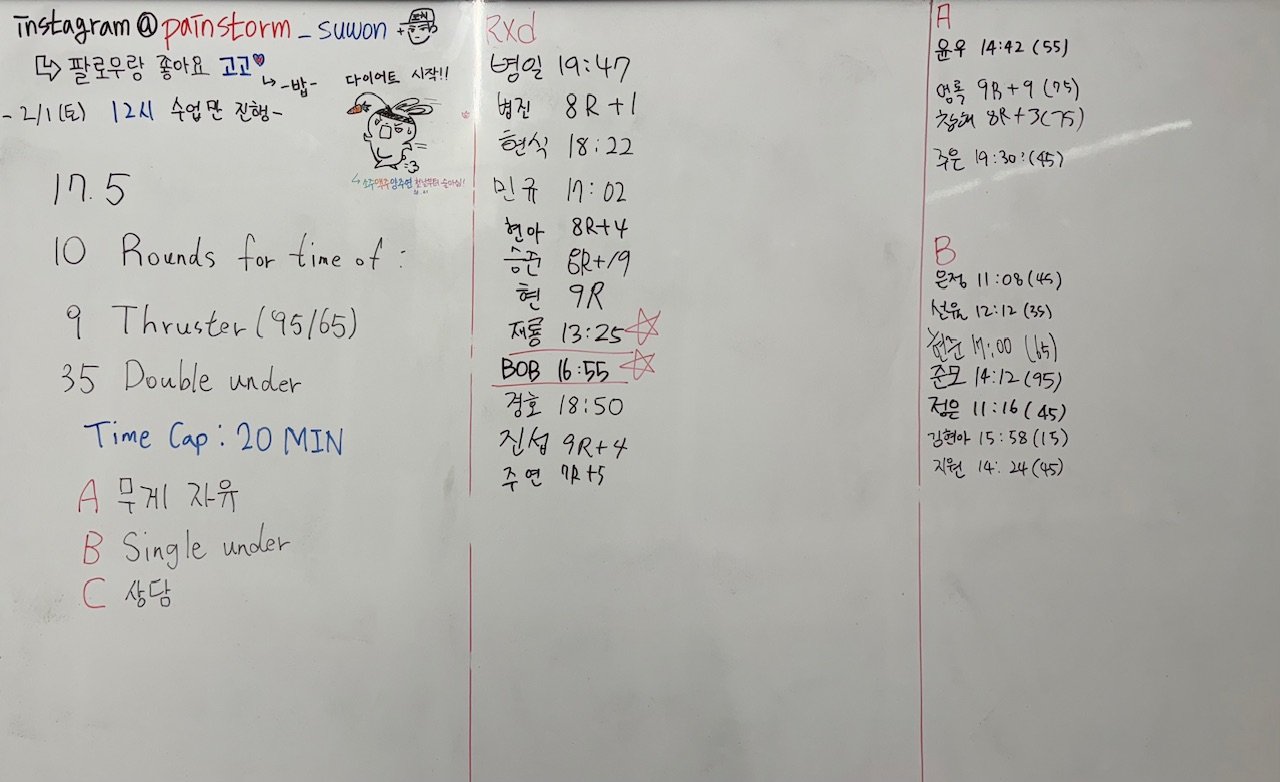 instagram @ painstorm_suwon
팔로우랑 좋아요 고고
-밥-
다이어트 시작!!
-2/1(토) 12시 수업만 진행-
17.5
10 Rounds for time of :
9 Thruster (95/65)
35 Double under
Time Cap : 20 MIN
A 무게 자유
B Single under
C 상담
Rxd
병일 19:47
병진 8R+1
현식 18:22
민규 17:02
현아 8R+4
승준 8R+19
현 9R
재룡 13:25
BOB 16:55
경호 18:50
진섭 9R+4
주연 7R+5
A
윤우 14:42 (55)
9R+9 (75)
8R+3 (75)
주은 19:30 (45)
B
은정 11:08 (45)
선유 12:12 (35)
17:00 (65)
준모 14:12 (95)
정은 11:16 (45)
김현아 15:58 (15)
지원 14:24 (45)